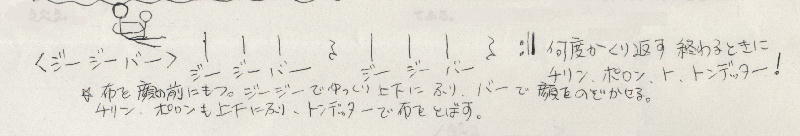 <ジー ジー バー> ジー ジー バー ジー ジー バー 何度かくり返す 終わるときに
チリン、ポロン、ト、トンデッター!
* 布を顔の前にもつ。ジージーでゆっくり上下にふり、バーで顔をのぞかせる。
チリン、ポロンも上下にふり、トンデッターで布をとばす。